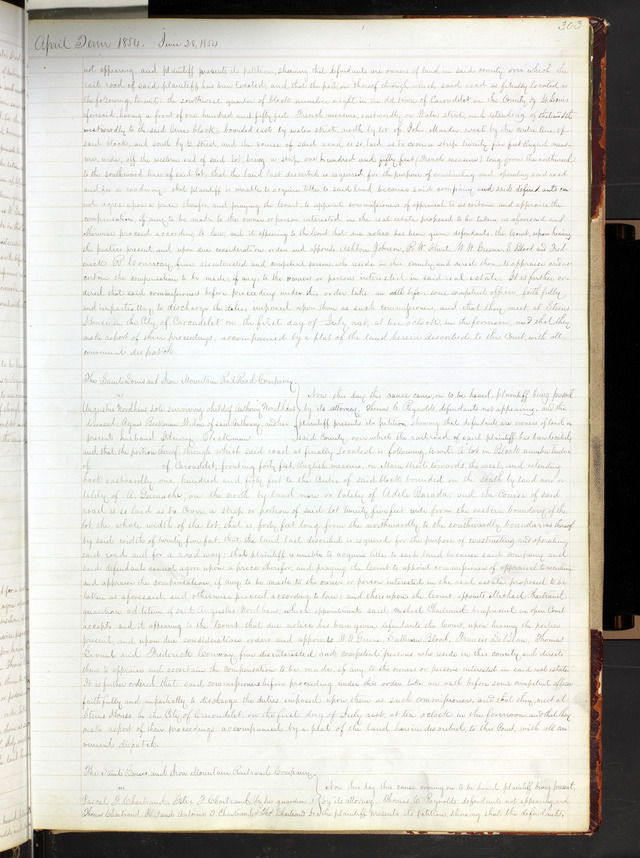 303
April Term 1854. June 28, 1854
not appearing, and plaintiff presents its petition, showing that defendants are owners of land in said county over which the
rail road of said plaintiff has been located, and that the portion thereof through which said road is finally located is
the following, to wit: the southwest quarter of block number eight in the old town of Carondelet in the County of St Louis
aforesaid, having a front of one hundred and fifty feet French measure, eastwardly on Water street, and extending of that width
westwardly to the said line block, bounded east by water street, north by lot of John Marder, west by the centre line of
said block, and south by B street, and the course of said road is so laid as to cover a strip twenty five feet English meas-
ure, wide, off the western end of said lot, being a strip one hundred and fifty feet (French measure) long from the northward
to the southward line of said lot, that the land last described is required for the purpose of constructing and operating said road
and for a roadway: that plaintiff is unable to acquire title to said land because said company and said defendants can
not agree upon a price therefor, and praying the Court to appoint commissioners of appraisal to ascertain and appraise the
compensation, if any to be made to the owner or person interested in the real estate proposed to be taken as aforesaid and
otherwise proceed according to law, and it appearing to the Court that due notice has been given defendants, the Court, upon hearing
the parties present and upon due consideration orders and appoints Johnson, R. W. Hunt, W. W. Greene, S. Block and Fred-
erick R. Conway five disinterested and competent persons who reside in this county and direct them to appraise and as-
certain the compensation to be made, if any, to the owners or persons interested in said real estate. It is further or-
dered that said commissioners before proceeding under this order take an oath before some competent officer, faithfully
and impartially to discharge the duties imposed upon them as such commissioners, and that they meet at Steins
House in the City of Carondelet on the first day of July next, at ten o'clock, in the forenoon, and that they
make report of their proceedings, accompanied by a plat of the land herein described, to this Court with all
convenient dispatch.
The Saint Louis and Iron Mountain Rail Road Company
vs
Now this day this cause coming on to be heard, plaintiff being present
Augustus Wordhaus sole surviving child of Anthony Wordhaus
by its attorney Thomas C. Reynolds, defendants not appearing, and the
deceased, Agnes Beekman, Widow of said Anthony, and her
plaintiff presents its petition showing that defendants are owners of land in
present husband Beekman
said County, over which the railroad of said plaintiff has been located,
and that the portion thereof through which said road is finally located is following, to wit: A lot in Block number
of Carondelet, fronting forty feet English measure, on Main street towards the west, and extending
back eastwardly, one hundred and fifty feet to the centre of said block bounded on the south by land now or
lately of A. Gamache, on the north by land now or lately of Adele Parada, and the Course of said
road is so laid as to cover a strip or portion of said lot twenty five feet wide from the eastern boundary of the
lot the whole width of the lot, that is forty feet long from the northwardly to the southwardly boundaries thereof
by said width of twenty five feet, that the land last described is required for the purpose of constructing and operating
said road and for a road way; that plaintiff is unable to acquire title to said land because said company and
said defendants cannot agree upon a price therefor and praying the Court to appoint commissioners of appraisal to ascertain
and appraise the compensation, if any to be made to the owner or person interested in the real estate proposed to be
taken as aforesaid and otherwise proceed according to law; and thereupon the Court appoints Michael Chartrand
guardian ad litem of said Augustus Wordhaus, which appointment said Michael Chartrand being present in open Court
accepts, and it appearing to the Court that due notice has been given defendants the Court, upon hearing the parties
present, and upon due consideration orders and appoints W. W. Greene, Sullivan Block, Francis Selsom, Thomas
and Frederick Conway five disinterested and competent persons who reside in this county and directs
them to appraise and ascertain the compensation to be made, if any to the owners or persons interested in said real estate.
It is further ordered that said commissioners before proceeding under this order, take an oath before some competent officer
faithfully and impartially to discharge the duties imposed upon them as such commissioners, and that they meet at
Steins House in the City of Carondelet, on the first day of July next, at ten o'clock in the forenoon, and that they
make report of their proceedings, accompanied by a plat of the land herein described, to this Court, with all con-
venient dispatch.
The Saint Louis and Iron Mountain Railroad Company
vs
Now this day this cause coming on to be heard, plaintiff being present,
Pascal J. Chartrand, Peter T. Chartrand (by his guardian)
by its attorney Thomas C. Reynolds defendants not appearing and
Thomas Chartrand Antoine T. Chartrand
the plaintiff presents its petition, showing that the defendants,